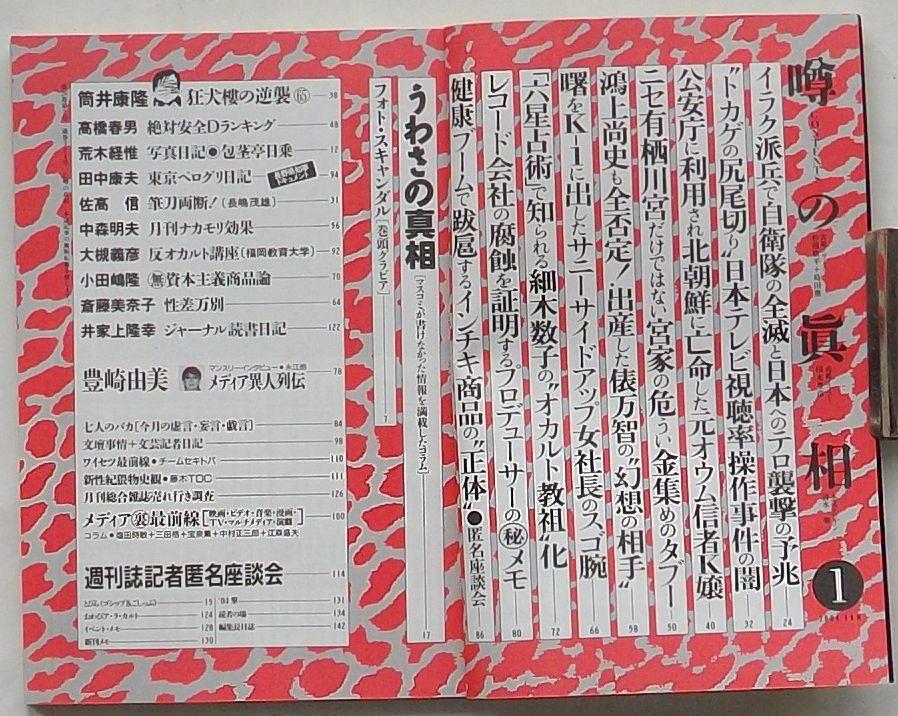 噂の眞相
CONTENTS
1
2004 JAN
イラク派兵で自衛隊の全滅と日本へのテロ襲撃の予兆
24
"トカゲの尻尾切り"日本テレビ視聴率操作事件の闇
32
公安庁に利用され北朝鮮に亡命した元オウム信者K嬢
40
ニセ有栖川宮だけではない宮家の危うい金集めのタブー
50
鴻上尚史も全否定!出産した俵万智の"幻想の相手"
58
曙をK-1に出したサニーサイドアップ女社長のスゴ腕
66
「六星占術」で知られる細木数子の"オカルト教祖"化
72
レコード会社の腐蝕を証明するプロデューサーの㊙メモ
80
健康ブームで跋扈するインチキ商品の"正体"●匿名座談会
86
うわさの真相[マスコミが書けなかった情報を満載したコラム]
17
フォト・スキャンダル[巻頭グラビア]
7
筒井康隆 狂犬樓の逆襲 65 38
高橋春男 絶対安全Dランキング 48
荒木経惟 写真日記●包茎亭日乗 12
田中康夫 東京ペログリ日記 長野県知事ドキュメント 94
佐高 信 筆刀両断!〔長嶋茂雄〕 31
中森明夫 月刊ナカモリ効果 56
大槻義彦 反オカルト講座〔福岡教育大学〕 92
小田嶋隆 ㊒無資本主義商品論 70
斎藤美奈子 性差万別 64
井家上隆幸 ジャーナル読書日記 122
豊崎由美 マンスリーインタビュー●永江朗
メディア異人列伝 78
七人のバカ[今月の虚言・妄言・戯言] 84
文壇事情+文芸記者日記 98
ワイセツ最前線●チームセキトバ 110
新性紀猥物史観●藤木TDC 111
月刊総合雑誌売れ行き調査 126
メディア裏最前線[映画・ビデオ・音楽・漫画・TV・マルチメディア・演劇] 100
コラム●塩田時敏+三田格+宝泉薫+中村正三郎+江森盛夫
週刊誌記者匿名座談会 114
15
124
イベント・メモ 128
新刊メモ 130
131
読者の場 134
編集長日誌 142